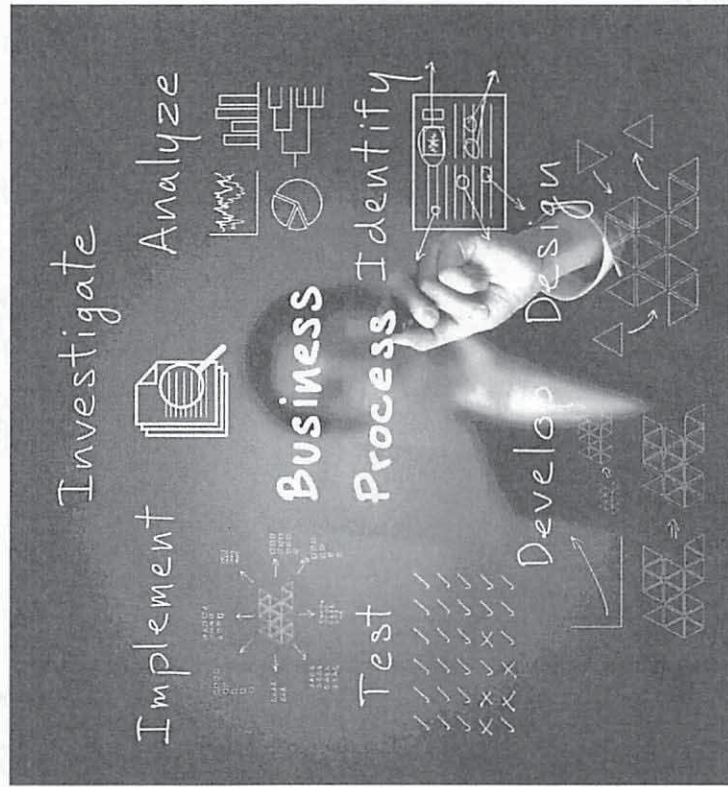 Investigate
Implement
Analyze
Business
Process
Test
Identify
Develop
Design